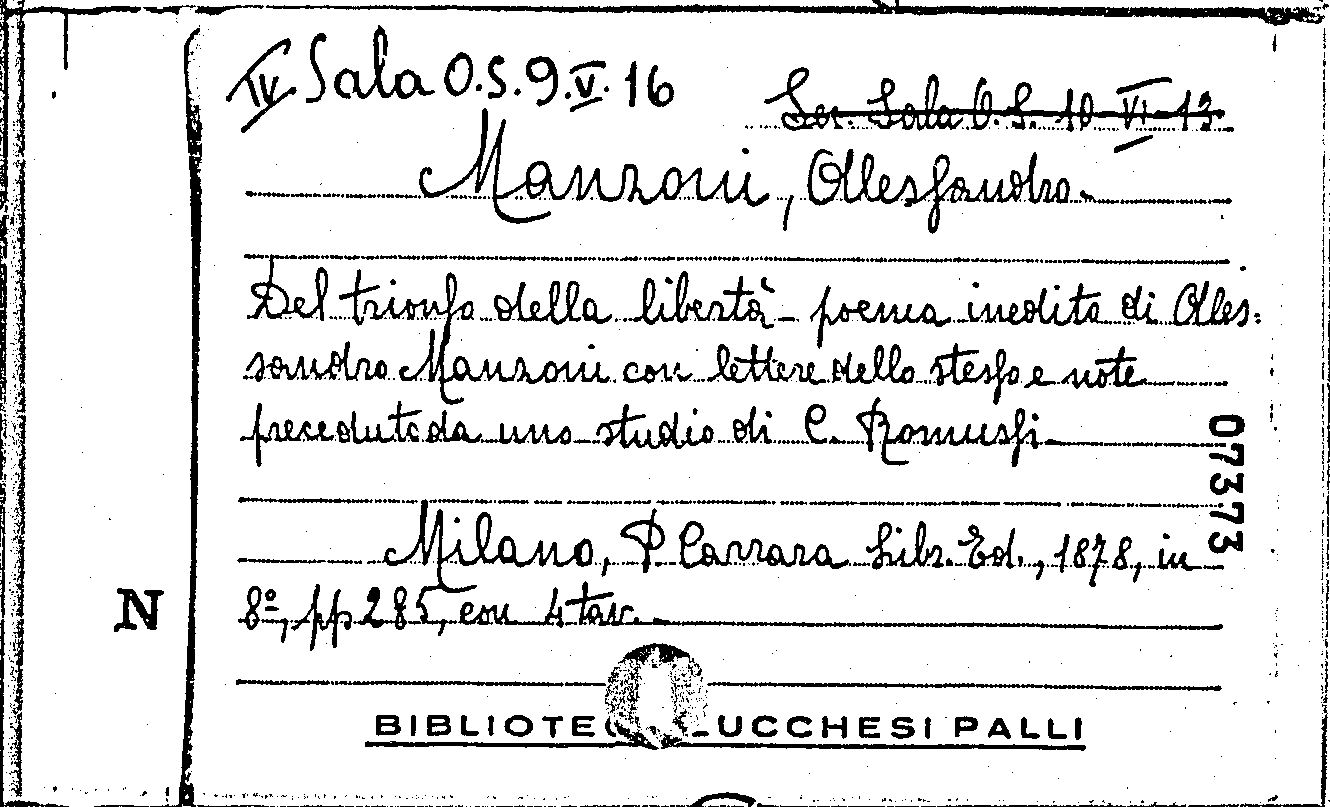 IV Sala O.S.9.V.16
Sec. Sala O.S. 10 VI 13
Manzoni, Alessandro.
Del trionfo della libertà - poema inedito di Ales:
sandro Manzoni con lettere dello stesso e note
preceduto da uno studio di C. Romussi
07373
Milano, P. Carrara Libr. Ed., 1878, in
8º, pp 285, con 4 tav.
N
BIBLIOTECA LUCCHESI PALLI